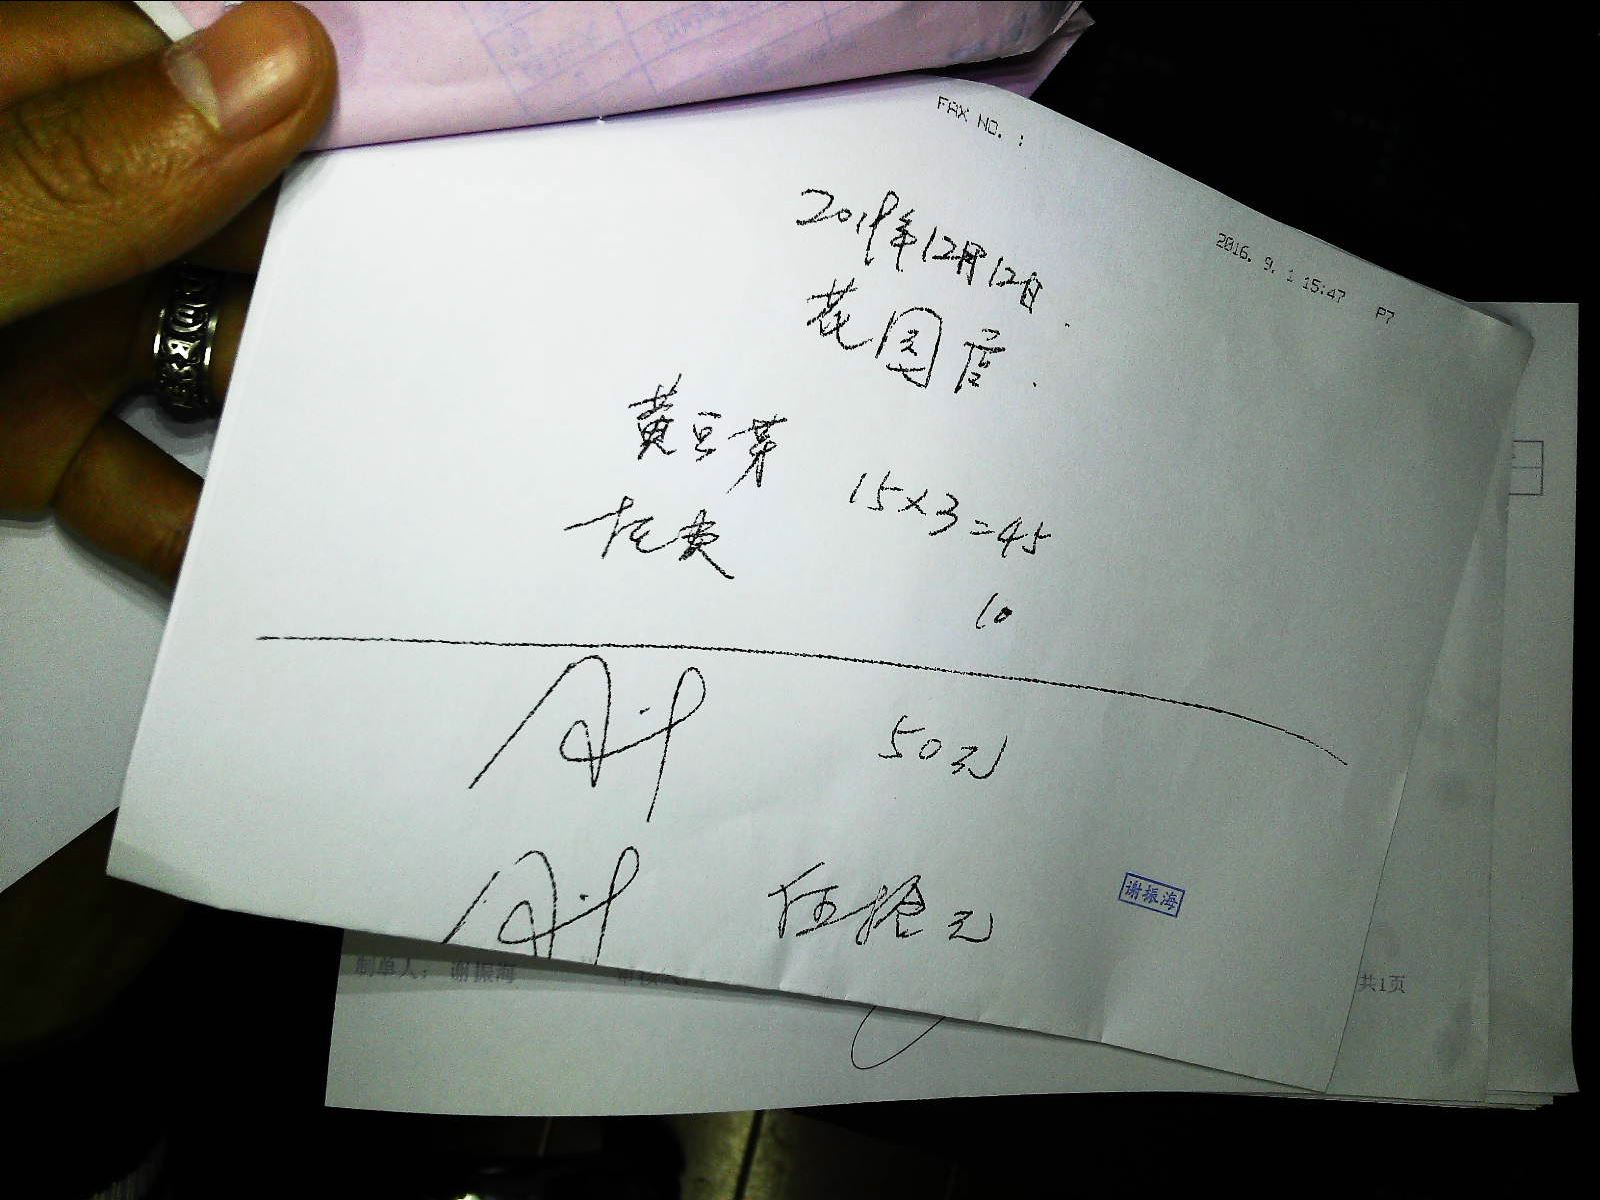 FAX NO. :
2016. 9. 1 15:47 P7
2019年12月12日.
花园店.
黄豆芽 15×3=45
10
50元
伍拾元
谢振海
制单人： 谢振海
共1页